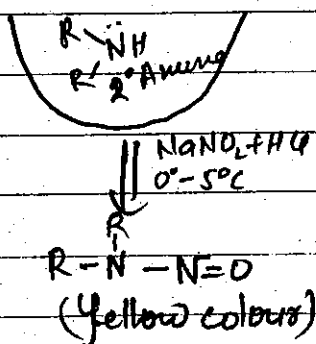 R
N̈H
R'
2° Amine
NaNO₂ + HCl
0°-5°C
R
R-N-N=O
(Yellow colour)